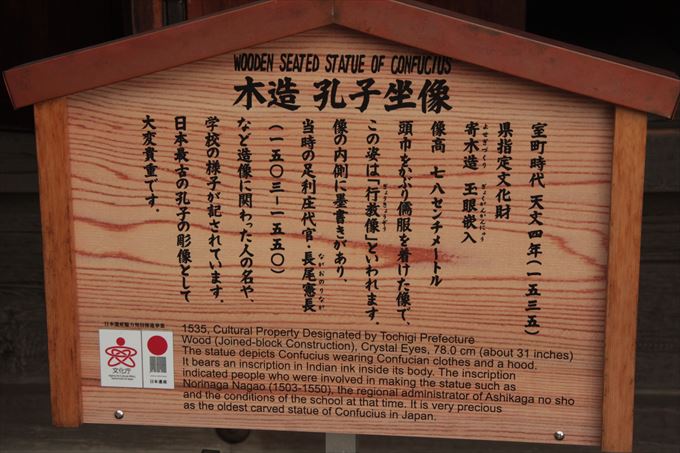 WOODEN SEATED STATUE OF CONFUCIUS
木造 孔子坐像
室町時代 天文四年（一五三五）
県指定文化財
寄木造 玉眼嵌入
像高 七八センチメートル
頭巾をかぶり儒服を着けた像で、
この姿は「行教像」といわれます。
像の内側に墨書きがあり、
当時の足利庄代官・長尾憲長
（一五〇三－一五五〇）
など造像に関わった人の名や、
学校の様子が記されています。
日本最古の孔子の彫像として
大変貴重です。
1535, Cultural Property Designated by Tochigi Prefecture
Wood (Joined-block Construction), Crystal Eyes, 78.0 cm (about 31 inches)
The statue depicts Confucius wearing Confucian clothes and a hood.
It bears an inscription in Indian ink inside its body. The inscription
indicated people who were involved in making the statue such as
Norinaga Nagao (1503-1550), the regional administrator of Ashikaga no sho
and the conditions of the school at that time. It is very precious
as the oldest carved statue of Confucius in Japan.
日本遺産魅力発信推進事業
文化庁
日本遺産